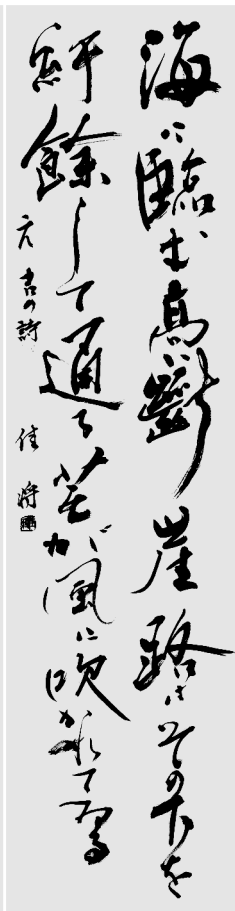 海に臨む高い斷崖路はその下を
紆餘して通る芒が風に吹かれてゐる
元吉の詩 佳将